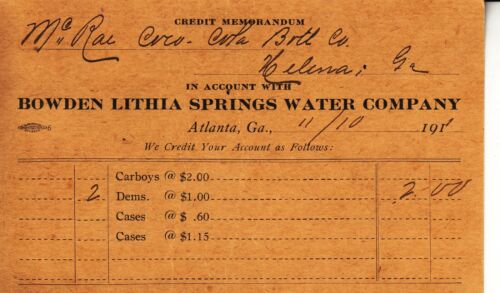 CREDIT MEMORANDUM
Mc Rae Coco-Cola Bott Co.
Helena; Ga
IN ACCOUNT WITH
BOWDEN LITHIA SPRINGS WATER COMPANY
Atlanta, Ga., 11/10 1911
We Credit Your Account as Follows:
Carboys @ $2.00
2 Dems. @ $1.00 2 00
Cases @ $ .60
Cases @ $1.15